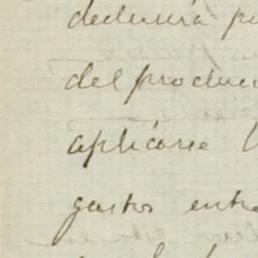 deducirá
del produc
aplicarse
gastos entr